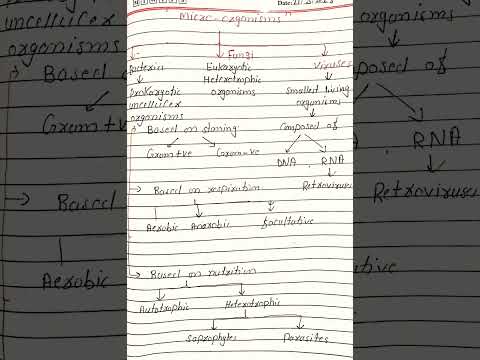 Date:
"Micro-organisms"
Bacteria Fungi Viruses
Prokaryotic Eukaryotic Smallest living
unicellular Heterotrophic organisms
organisms organisms
Based on staining Composed of
Gram +ve Gram -ve DNA , RNA
Based on respiration Retroviruses
Aerobic Anarobic Facultative
Based on nutrition
Autotrophic Heterotrophic
Saprophytes Parasites
unicellular
organisms
Based
Gram +ve
Based
Aerobic
organisms
composed of
RNA
Retroviruses